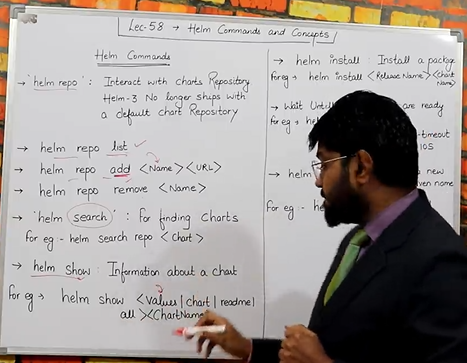 Lec-58 → Helm Commands and Concepts
Helm Commands
→ 'helm repo' : Interact with charts Repository
Helm-3 No longer ships with
a default chart Repository
→ helm repo list ✓
→ helm repo add <Name> <URL>
→ helm repo remove <Name>
→ 'helm search' : for finding Charts
for eg - helm search repo <Chart>
→ helm show : Information about a chart
for eg → helm show <values | chart | readme |
all> <ChartName
→ helm install : Install a package
for eg → helm install <Release Name> <Chart
Name>
→ Wait Until are ready
for eg → he
-timeout
10s
→ hel new
ven name
for eg - hel